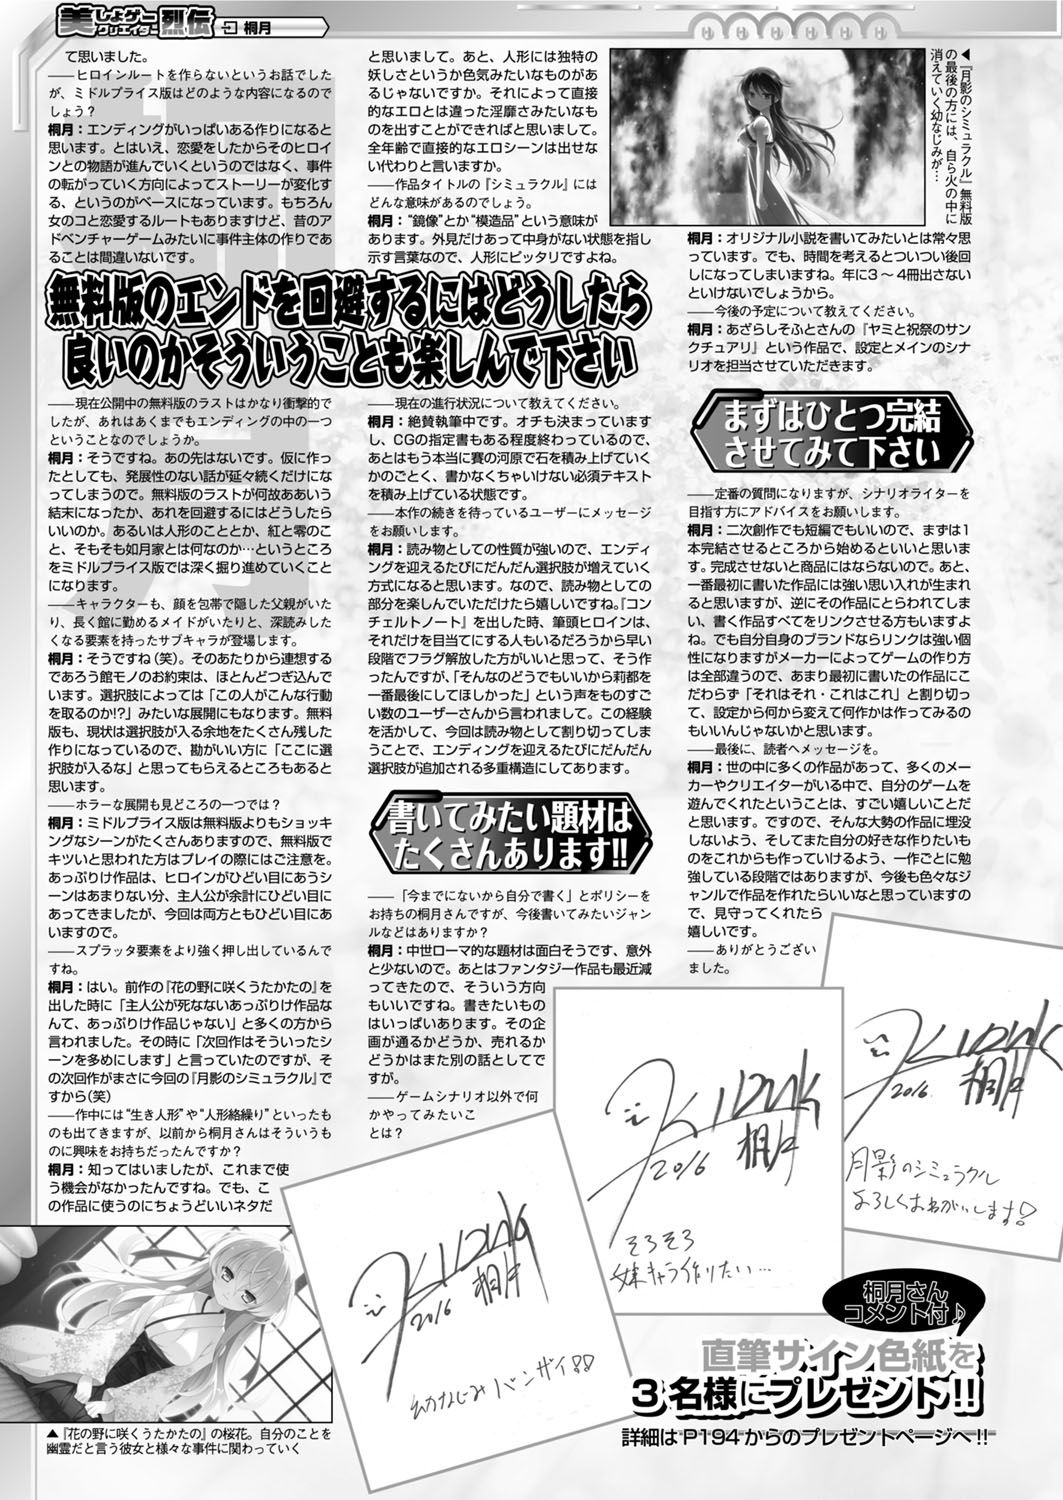 美しょゲークリエイター烈伝 桐月
て思いました。
――ヒロインルートを作らないというお話でした
が、ミドルプライス版はどのような内容になるので
しょう？
桐月：エンディングがいっぱいある作りになると
思います。とはいえ、恋愛をしたからそのヒロイ
ンとの物語が進んでいくというのではなく、事件
の転がっていく方向によってストーリーが変化す
る、というのがベースになっています。もちろん
女のコと恋愛するルートもありますけど、昔のア
ドベンチャーゲームみたいに事件主体の作りであ
ることは間違いないです。
無料版のエンドを回避するにはどうしたら
良いのかそういうことも楽しんで下さい
――現在公開中の無料版のラストはかなり衝撃的で
したが、あれはあくまでもエンディングの中の一つ
ということなのでしょうか。
桐月：そうですね。あの先はないです。仮に作っ
たとしても、発展性のない話が延々続くだけにな
ってしまうので。無料版のラストが何故ああいう
結末になったか、あれを回避するにはどうしたら
いいのか。あるいは人形のこととか、紅と零のこ
と、そもそも如月家とは何なのか…というところ
をミドルプライス版では深く掘り進めていくこと
になります。
――キャラクターも、顔を包帯で隠した父親がいた
り、長く館に勤めるメイドがいたりと、深読みした
くなる要素を持ったサブキャラが登場します。
桐月：そうですね（笑）。そのあたりから連想する
であろう館モノのお約束は、ほとんどつぎ込んで
います。選択肢によっては「この人がこんな行動
を取るのか!?」みたいな展開にもなります。無料
版も、現状は選択肢が入る余地をたくさん残した
作りになっているので、勘がいい方に「ここに選
択肢が入るな」と思ってもらえるところもあると
思います。
――ホラーな展開も見どころの一つでは？
桐月：ミドルプライス版は無料版よりもショッキ
ングなシーンがたくさんありますので、無料版で
キツいと思われた方はプレイの際にはご注意を。
あっぷりけ作品は、ヒロインがひどい目にあうシ
ーンはあまりない分、主人公が余計にひどい目に
あってきましたが、今回は両方ともひどい目にあ
いますので。
――スプラッタ要素をより強く押し出しているんで
すね。
桐月：はい。前作の『花の野に咲くうたかたの』を
出した時に「主人公が死なないあっぷりけ作品な
んて、あっぷりけ作品じゃない」と多くの方から
言われました。その時に「次回作はそういったシ
ーンを多めにします」と言っていたのですが、そ
の次回作がまさに今回の『月影のシミュラクル』で
すから（笑）
――作中には“生き人形”や“人形絡繰り”といったも
のも出てきますが、以前から桐月さんはそういうも
のに興味をお持ちだったんですか？
桐月：知ってはいましたが、これまで使
う機会がなかったんですね。でも、こ
の作品に使うのにちょうどいいネタだ
▲『花の野に咲くうたかたの』の桜花。自分のことを
幽霊だと言う彼女と様々な事件に関わっていく
と思いまして。あと、人形には独特の
妖しさというか色気みたいなものがあ
るじゃないですか。それによって直接
的なエロとは違った淫靡さみたいなも
のを出すことができればと思いまして。
全年齢で直接的なエロシーンは出せな
い代わりと言いますか。
――作品タイトルの『シミュラクル』には
どんな意味があるのでしょう。
桐月：“鏡像”とか“模造品”という意味が
あります。外見だけあって中身がない状態を指し
示す言葉なので、人形にピッタリですよね。
――現在の進行状況について教えてください。
桐月：絶賛執筆中です。オチも決まっていますし
、CGの指定書もある程度終わっているので、
あとはもう本当に賽の河原で石を積み上げていく
かのごとく、書かなくちゃいけない必須テキスト
を積み上げている状態です。
――本作の続きを待っているユーザーにメッセージ
をお願いします。
桐月：読み物としての性質が強いので、エンディ
ングを迎えるたびにだんだん選択肢が増えていく
方式になると思います。なので、読み物としての
部分を楽しんでいただけたら嬉しいですね。『コン
チェルトノート』を出した時、筆頭ヒロインは、
それだけを目当てにする人もいるだろうから早い
段階でフラグ解放した方がいいと思って、そう作
ったんですが、「そんなのどうでもいいから莉都を
一番最後にしてほしかった」という声をものすご
い数のユーザーさんから言われまして。この経験
を活かして、今回は読み物として割り切ってしま
うことで、エンディングを迎えるたびにだんだん
選択肢が追加される多重構造にしてあります。
書いてみたい題材は
たくさんあります!!
――「今までにないから自分で書く」とポリシーを
お持ちの桐月さんですが、今後書いてみたいジャン
ルなどはありますか？
桐月：中世ローマ的な題材は面白そうです、意外
と少ないので。あとはファンタジー作品も最近減
ってきたので、そういう方向
もいいですね。書きたいもの
はいっぱいあります。その企
画が通るかどうか、売れるか
どうかはまた別の話としてで
すが。
――ゲームシナリオ以外で何
かやってみたいこ
とは？
◀『月影のシミュラクル』無料版
の最後の方には、自ら火の中に
消えていく幼なじみが…
桐月：オリジナル小説を書いてみたいとは常々思
っています。でも、時間を考えるとついつい後回
しになってしまいますね。年に3～4冊出さない
といけないでしょうから。
――今後の予定について教えてください。
桐月：あざらしそふとさんの『ヤミと祝祭のサン
クチュアリ』という作品で、設定とメインのシナ
リオを担当させていただきます。
まずはひとつ完結
させてみて下さい
――定番の質問になりますが、シナリオライターを
目指す方にアドバイスをお願いします。
桐月：二次創作でも短編でもいいので、まずは1
本完結させるところから始めるといいと思いま
す。完成させないと商品にはならないので。あと、
一番最初に書いた作品には強い思い入れが生まれ
ると思いますが、逆にその作品にとらわれてしま
い、書く作品すべてをリンクさせる方もいますよ
ね。でも自分自身のブランドならリンクは強い個
性になりますがメーカーによってゲームの作り方
は全部違うので、あまり最初に書いた作品にこ
だわらず「それはそれ・これはこれ」と割り切っ
て、設定から何から変えて何作かは作ってみるの
もいいんじゃないかと思います。
――最後に、読者へメッセージを。
桐月：世の中に多くの作品があって、多くのメー
カーやクリエイターがいる中で、自分のゲームを
遊んでくれたということは、すごい嬉しいことだ
と思います。ですので、そんな大勢の作品に埋没
しないよう、そしてまた自分の好きな作りたいも
のをこれからも作っていけるよう、一作ごとに勉
強している段階ではありますが、今後も色々なジ
ャンルで作品を作れたらいいなと思っていますの
で、見守ってくれたら
嬉しいです。
――ありがとうござい
ました。
2016 桐月
幼なじみバンザイ!!
2016 桐月
そろそろ
妹キャラ作りたい…
2016 桐月
月影のシミュラクル
よろしくおねがいします!
桐月さん
コメント付♪
直筆サイン色紙を
3名様にプレゼント!!
詳細はP194からのプレゼントページへ!!